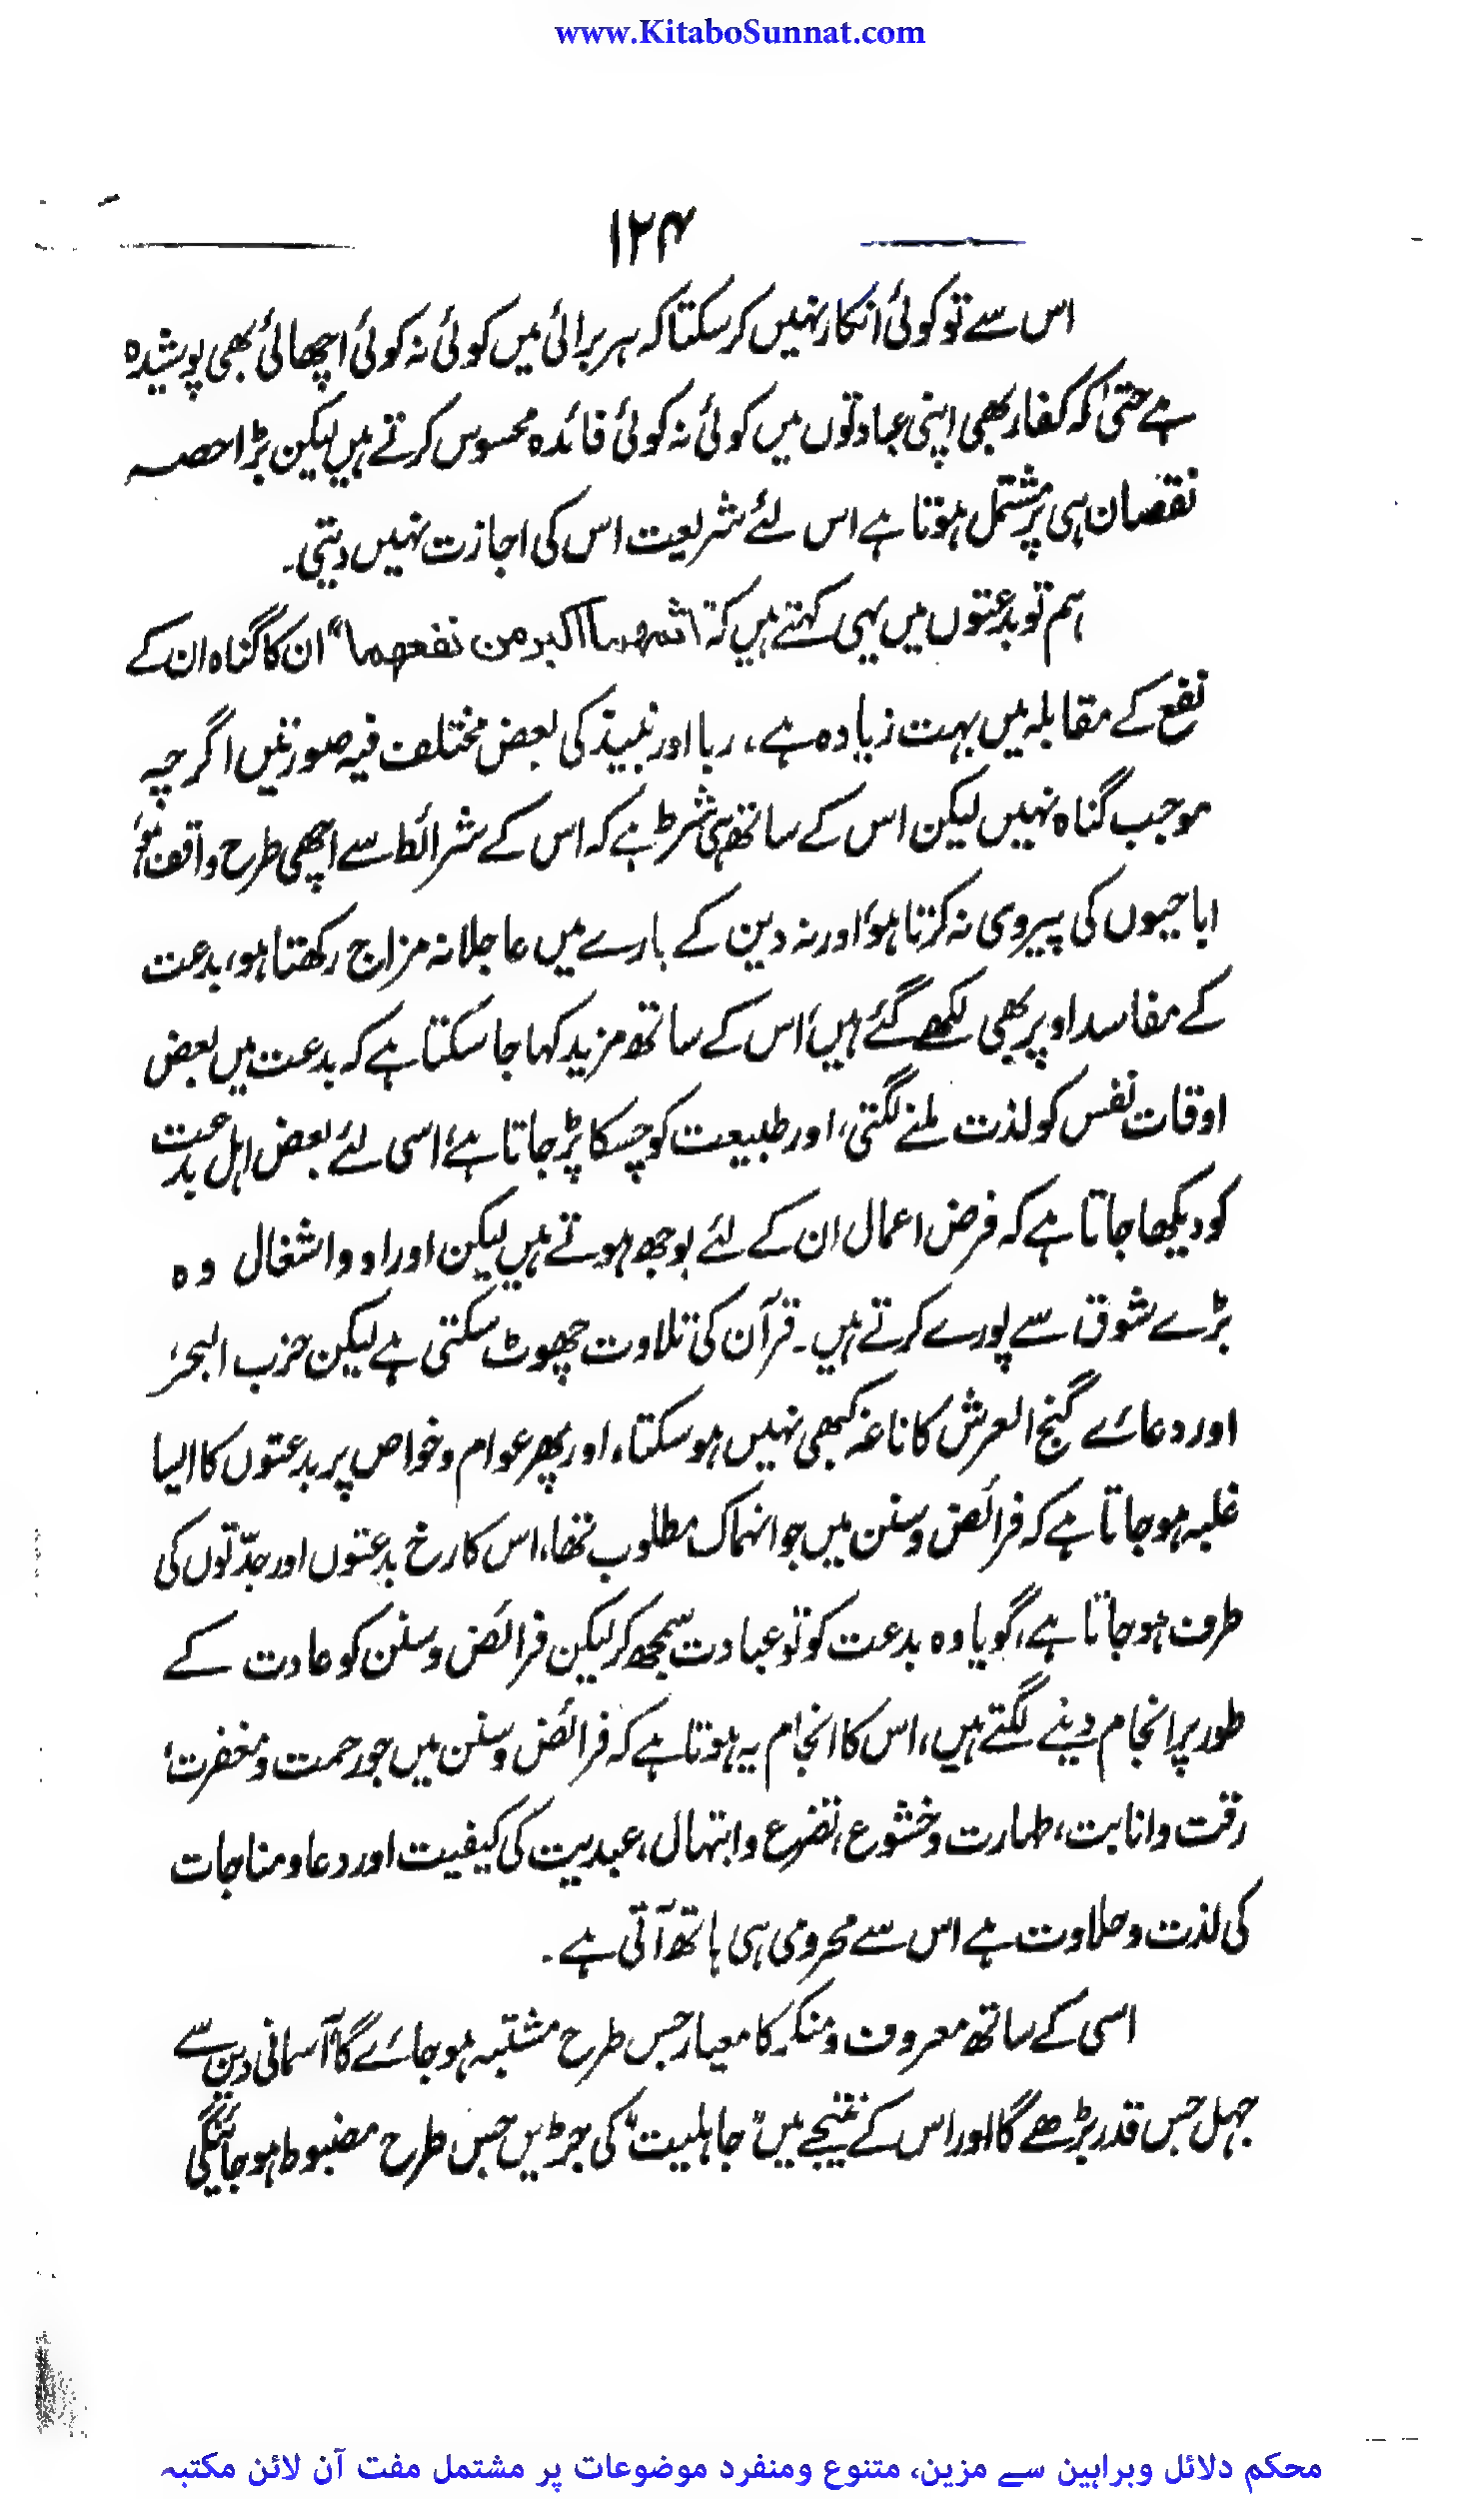 www.KitaboSunnat.com
۱۲۴
اس سے تو کوئی انکار نہیں کر سکتا کہ ہر برائی میں کوئی نہ کوئی اچھائی بھی پوشیدہ
ہے حتی کہ کفار بھی اپنی عبادتوں میں کوئی نہ کوئی فائدہ محسوس کرتے ہیں لیکن بڑا حصہ
نقصان ہی پر مشتمل ہوتا ہے اس لئے شریعت اس کی اجازت نہیں دیتی۔
ہم تو بدعتوں میں یہی کہتے ہیں کہ "اثمهما اكبر من نفعهما" ان کا گناہ ان کے
نفع کے مقابلہ میں بہت زیادہ ہے، ربا اور نبیذ کی بعض مختلف فیہ صورتیں اگرچہ
موجب گناہ نہیں لیکن اس کے ساتھ ہی شرط ہے کہ اس کے شرائط سے اچھی طرح واقف ہو،
اباحیوں کی پیروی نہ کرتا ہو، اور نہ دین کے بارے میں عاجلانہ مزاج رکھتا ہو، بدعت
کے مفاسد اوپر بھی لکھے گئے ہیں، اس کے ساتھ مزید کہا جا سکتا ہے کہ بدعت میں بعض
اوقات نفس کو لذت ملنے لگتی، اور طبیعت کو چسکا پڑ جاتا ہے، اسی لئے بعض اہل بدعت
کو دیکھا جاتا ہے کہ فرض اعمال ان کے لئے بوجھ ہوتے ہیں لیکن اوراد و اشغال وہ
بڑے شوق سے پورے کرتے ہیں۔ قرآن کی تلاوت چھوٹ سکتی ہے لیکن حزب البحر،
اور دعائے گنج العرش کا ناغہ کبھی نہیں ہو سکتا، اور پھر عوام و خواص پر بدعتوں کا ایسا
غلبہ ہو جاتا ہے کہ فرائض و سنن میں جو انہماک مطلوب تھا، اس کا رخ بدعتوں اور جدّتوں کی
طرف ہو جاتا ہے، گویا وہ بدعت کو تو عبادت سمجھ کر لیکن فرائض و سنن کو عادت کے
طور پر انجام دینے لگتے ہیں، اس کا انجام یہ ہوتا ہے کہ فرائض و سنن میں جو رحمت و مغفرت،
رقت و انابت، طہارت و خشوع، تضرع و ابتہال، عبدیت کی کیفیت اور دعا و مناجات
کی لذت و حلاوت ہے اس سے محرومی ہی ہاتھ آتی ہے۔
اسی کے ساتھ معروف و منکر کا معیار جس طرح مشتبہ ہو جائے گا، آسمانی دین سے
جہل جس قدر بڑھے گا اور اس کے نتیجے میں "جاہلیت" کی جڑیں جس طرح مضبوط ہو جائینگی
محکم دلائل وبراہین سے مزین، متنوع ومنفرد موضوعات پر مشتمل مفت آن لائن مکتبہ